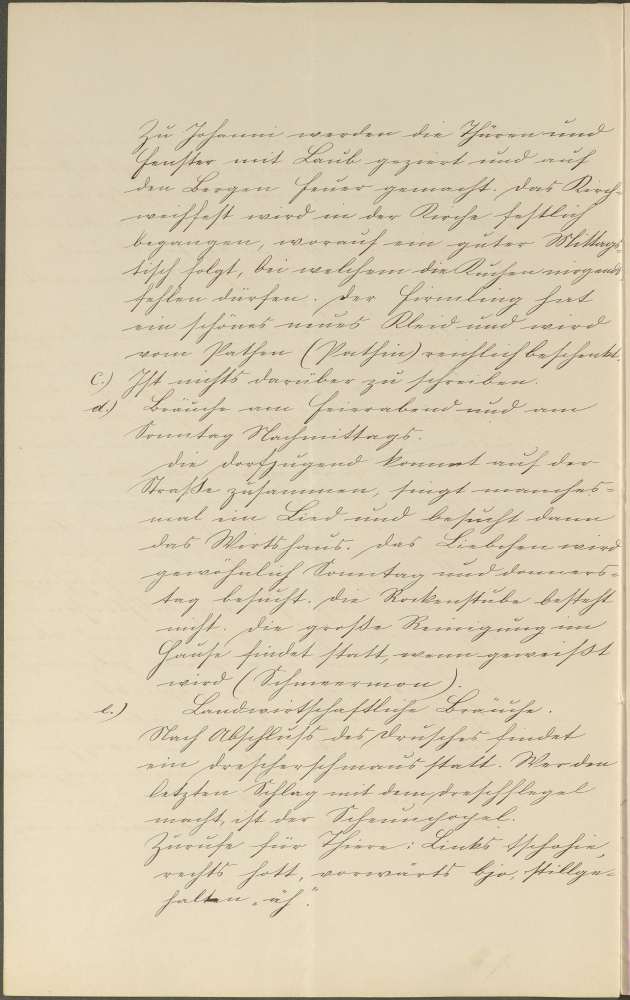 Zu Johanni werden die Thüren und
Fenster mit Laub geziert und auf
den Bergen Feuer gemacht. Das Kirch-
weihfest wird in der Kirche festlich
begangen, worauf ein guter Mittags-
tisch folgt, bei welchem die Kuchen nirgends
fehlen dürfen. Der Firmling hat
ein schönes neues Kleid und wird
vom Pathen (Pathin) reichlich beschenkt.
c.) Ist nichts darüber zu schreiben.
d.) Bräuche am Feierabend und am
Sonntag Nachmittags.
Die Dorfjugend kommt auf der
Straße zusammen, singt manches-
mal ein Lied und besucht dann
das Wirtshaus. Das Liebchen wird
gewöhnlich Sonntag und Donners-
tag besucht. Die Rockenstube besteht
nicht. Die große Reinigung im
Hause findet statt, wenn geweißt
wird (Schmeermon).
e.) Landwirtschaftliche Bräuche.
Nach Abschluss des Drusches findet
ein Drescherschmaus statt. Wer den
letzten Schlag mit dem Dreschflegel
macht, ist der
Zurufe für Thiere: Links tschohie,
rechts hott, vorwärts bjo, stillge-
halten „äh".